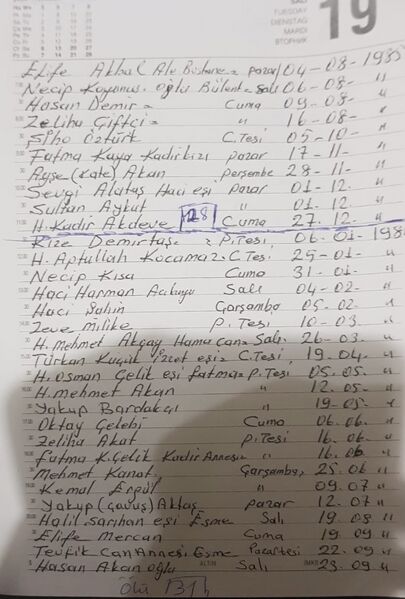 19
TUESDAY
DIENSTAG
MARDI
Elife Akbal Alu Bühane = pazar 04-08-1985
Necip Kopumus. oğlu Bülent = Salı 06-08- "
Hasan Demir = Cuma 09-08- "
Zeliha Çiftçi = " 16-08- "
Ştho Öztürk C.Tesi 05-10- "
Fatma Kaya Kadirkızı pazar 17-11- "
Ayşe (Kate) Akan perşembe 28-11- "
Sevgi Alataş Haci eşi pazar 01-12. "
Sultan Aykut " 01.12. "
H. Kadir Akdeve 128 Cuma 27.12. "
Rize Demirtaş = P.Tesi, 06-01-198
H. Aptullah Kocamaz. C.Tesi 25-01- "
Necip Kısa Cuma 31-01- "
Haci Harman Salı 04-02- "
Haci Şahin Çarşamba 05-02- "
Zeve milike P.Tesi 10-03. "
H. Mehmet Akçay Hama can = Salı. 26-03- "
Türkan Küçük İzzet eşi = C.Tesi, 19.04- "
H. Osman Çelik eşi fatma = p.Tesi 05.05- "
H. mehmet Akan " 12.05- "
Yakup Bardakçı " 19-05- "
Oktay Çelebi Cuma 06.06. "
Zeliha Akat p.Tesi 16.06 "
Fatma K.Çelik Kadir Annesi " 16.06 "
Mehmet Kanat. Çarşamba, 25.06 "
Kemal Ergül " 09.07 "
Yakup (çavuş) Aktaş pazar 12.07 "
Halil Sarıhan eşi Esme Salı 19.08 "
Elife Mercan Cuma 19.09 "
Tevfik Can Annesi Esme Pazartesi 22.09 "
Hasan Akan oğlu Salı 23.09 "
Ölü